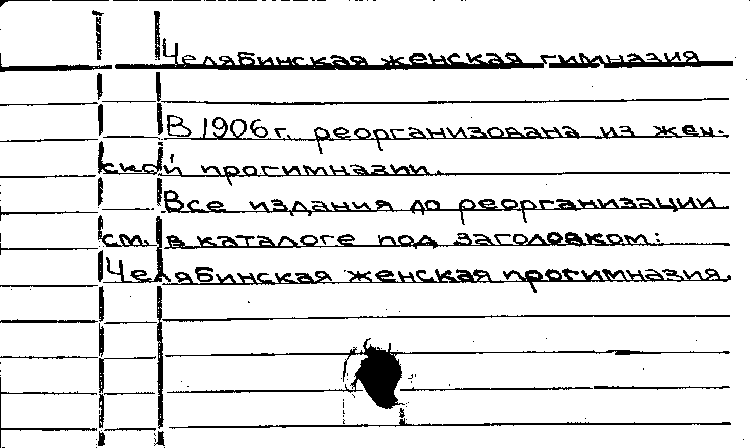 Челябинская женская гимназия
В 1906 г. реорганизована из жен-
ской прогимназии.
Все издания до реорганизации
см. в каталоге под заголовком:
Челябинская женская прогимназия.